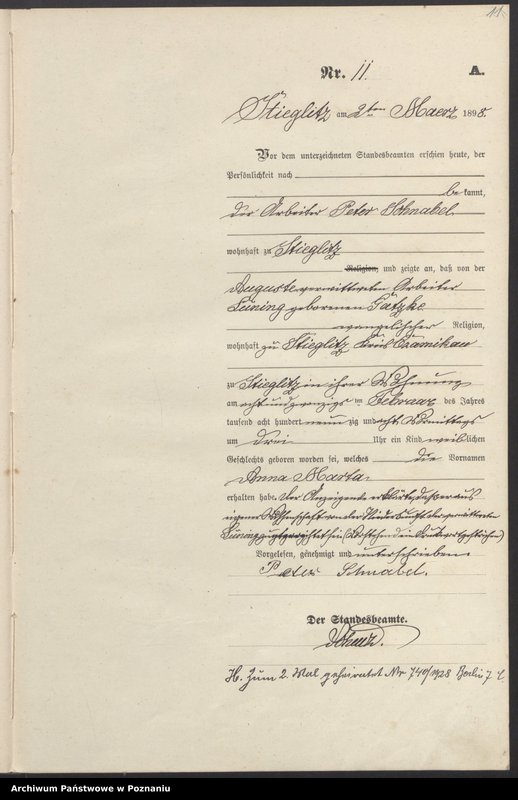 11.
Nr. 11. A.
Stieglitz am 2ten Maerz 1898.
Vor dem unterzeichneten Standesbeamten erschien heute, der
Persönlichkeit nach
be kannt,
der Arbeiter Peter Schnabel
wohnhaft zu Stieglitz
Religion, und zeigte an, daß von der
Auguste verwittweten Arbeiter
Lüning geborenen Gatzke
evangelischer Religion,
wohnhaft zu Stieglitz Kreis Czarnikau
zu Stieglitz in ihrer Wohnung
am acht und zwanzigs ten Februar des Jahres
tausend acht hundert neun zig und acht Vormittags
um drei Uhr ein Kind weib lichen
Geschlechts geboren worden sei, welches die Vornamen
Anna Marta
erhalten habe. Der Anzeigende erklärte, daß er aus
eigener Wissenschaft von der Niederkunft der verwittweten
Lüning unterrichtet sei
Vorgelesen, genehmigt und unterschrieben.
Peter Schnabel.
Der Standesbeamte.
H. Zum 2. Mal geheiratet Nr 740/1928 Berlin 7
Archiwum Państwowe w Poznaniu